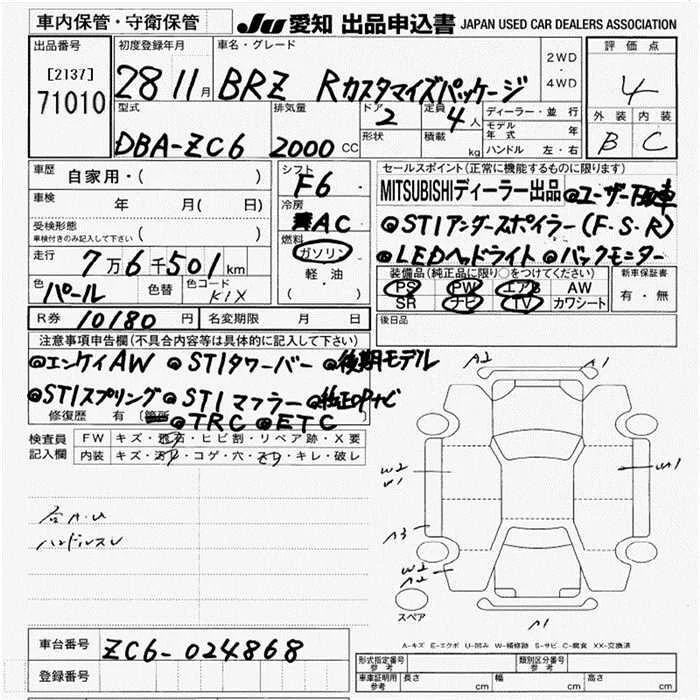 車内保管・守衛保管
JU 愛知 出品申込書 JAPAN USED CAR DEALERS ASSOCIATION
出品番号
[2137]
71010
初度登録年月
28 11月
車名・グレード
BRZ Rカスタマイズパッケージ
2WD
・
4WD
評価点
4
外装 内装
B C
型式
DBA-ZC6
排気量
2000 CC
ドア
2
形状
定員
4人
積載
kg
ディーラー・並行
モデル年式 年
ハンドル 左・右
車歴
自家用・( )
車検
年 月( 日)
受検形態
車検付きのみ記入して下さい ( )
走行
7万6千501km
色
パール
色替
色コード
K1X
シフト
F6
冷房
AC
燃料
ガソリン
軽・油
( )
セールスポイント(正常に機能するものに限ります)
MITSUBISHIディーラー出品 ◎ユーザー下取車
◎STIアンダースポイラー(F・S・R)
◎LEDヘッドライト ◎バックモニター
装備品(純正品に限り○をつけてください)
PS PW エアB AW
SR ナビ TV カワシート
新車保証書
有・無
R券 10180円 名変期限 月 日
後日品
注意事項申告欄(不具合内容等は具体的に記入して下さい)
◎エンケイAW ◎STIタワーバー ◎後期モデル
◎STIスプリング ◎STIマフラー ◎純正OPナビ
修復歴 有 (箇所 ◎TRC ◎ETC
検査員
記入欄
FW キズ・飛石・ヒビ割・リペア跡・X要
内装 キズ・汚れ・コゲ・穴・スレ・キレ・破レ
ハンドルスレ
A2 A1
W2
U1
A3
W2
A2
A1
スペア
A-キズ E-エクボ U-凹み W-補修跡 S-サビ C-腐食 XX-交換済
車台番号 ZC6-024868
登録番号
形式指定番号
参考
類別区分番号
参考
車庫証明用
参考
長さ cm 幅 cm 高さ cm